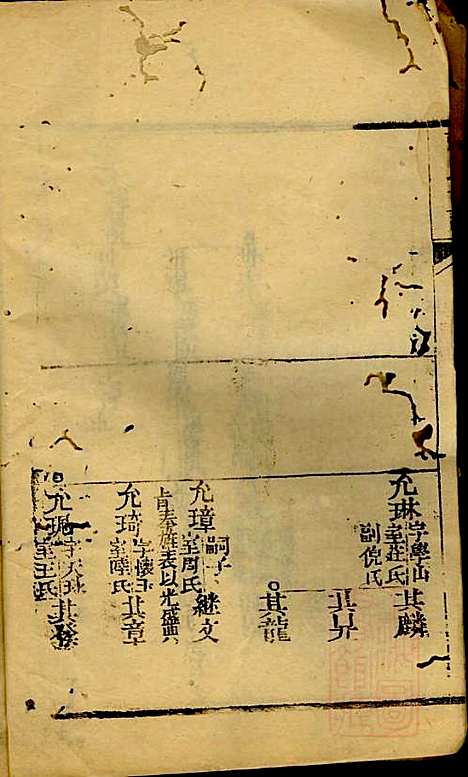 允琳字學山室莊氏副倪氏 其麟
其昇
其龍
允璋室周氏嗣子 継文
旨奉旌表以光盛典
允琦字懷玉室陸氏 其章
允珮室王氏 其發